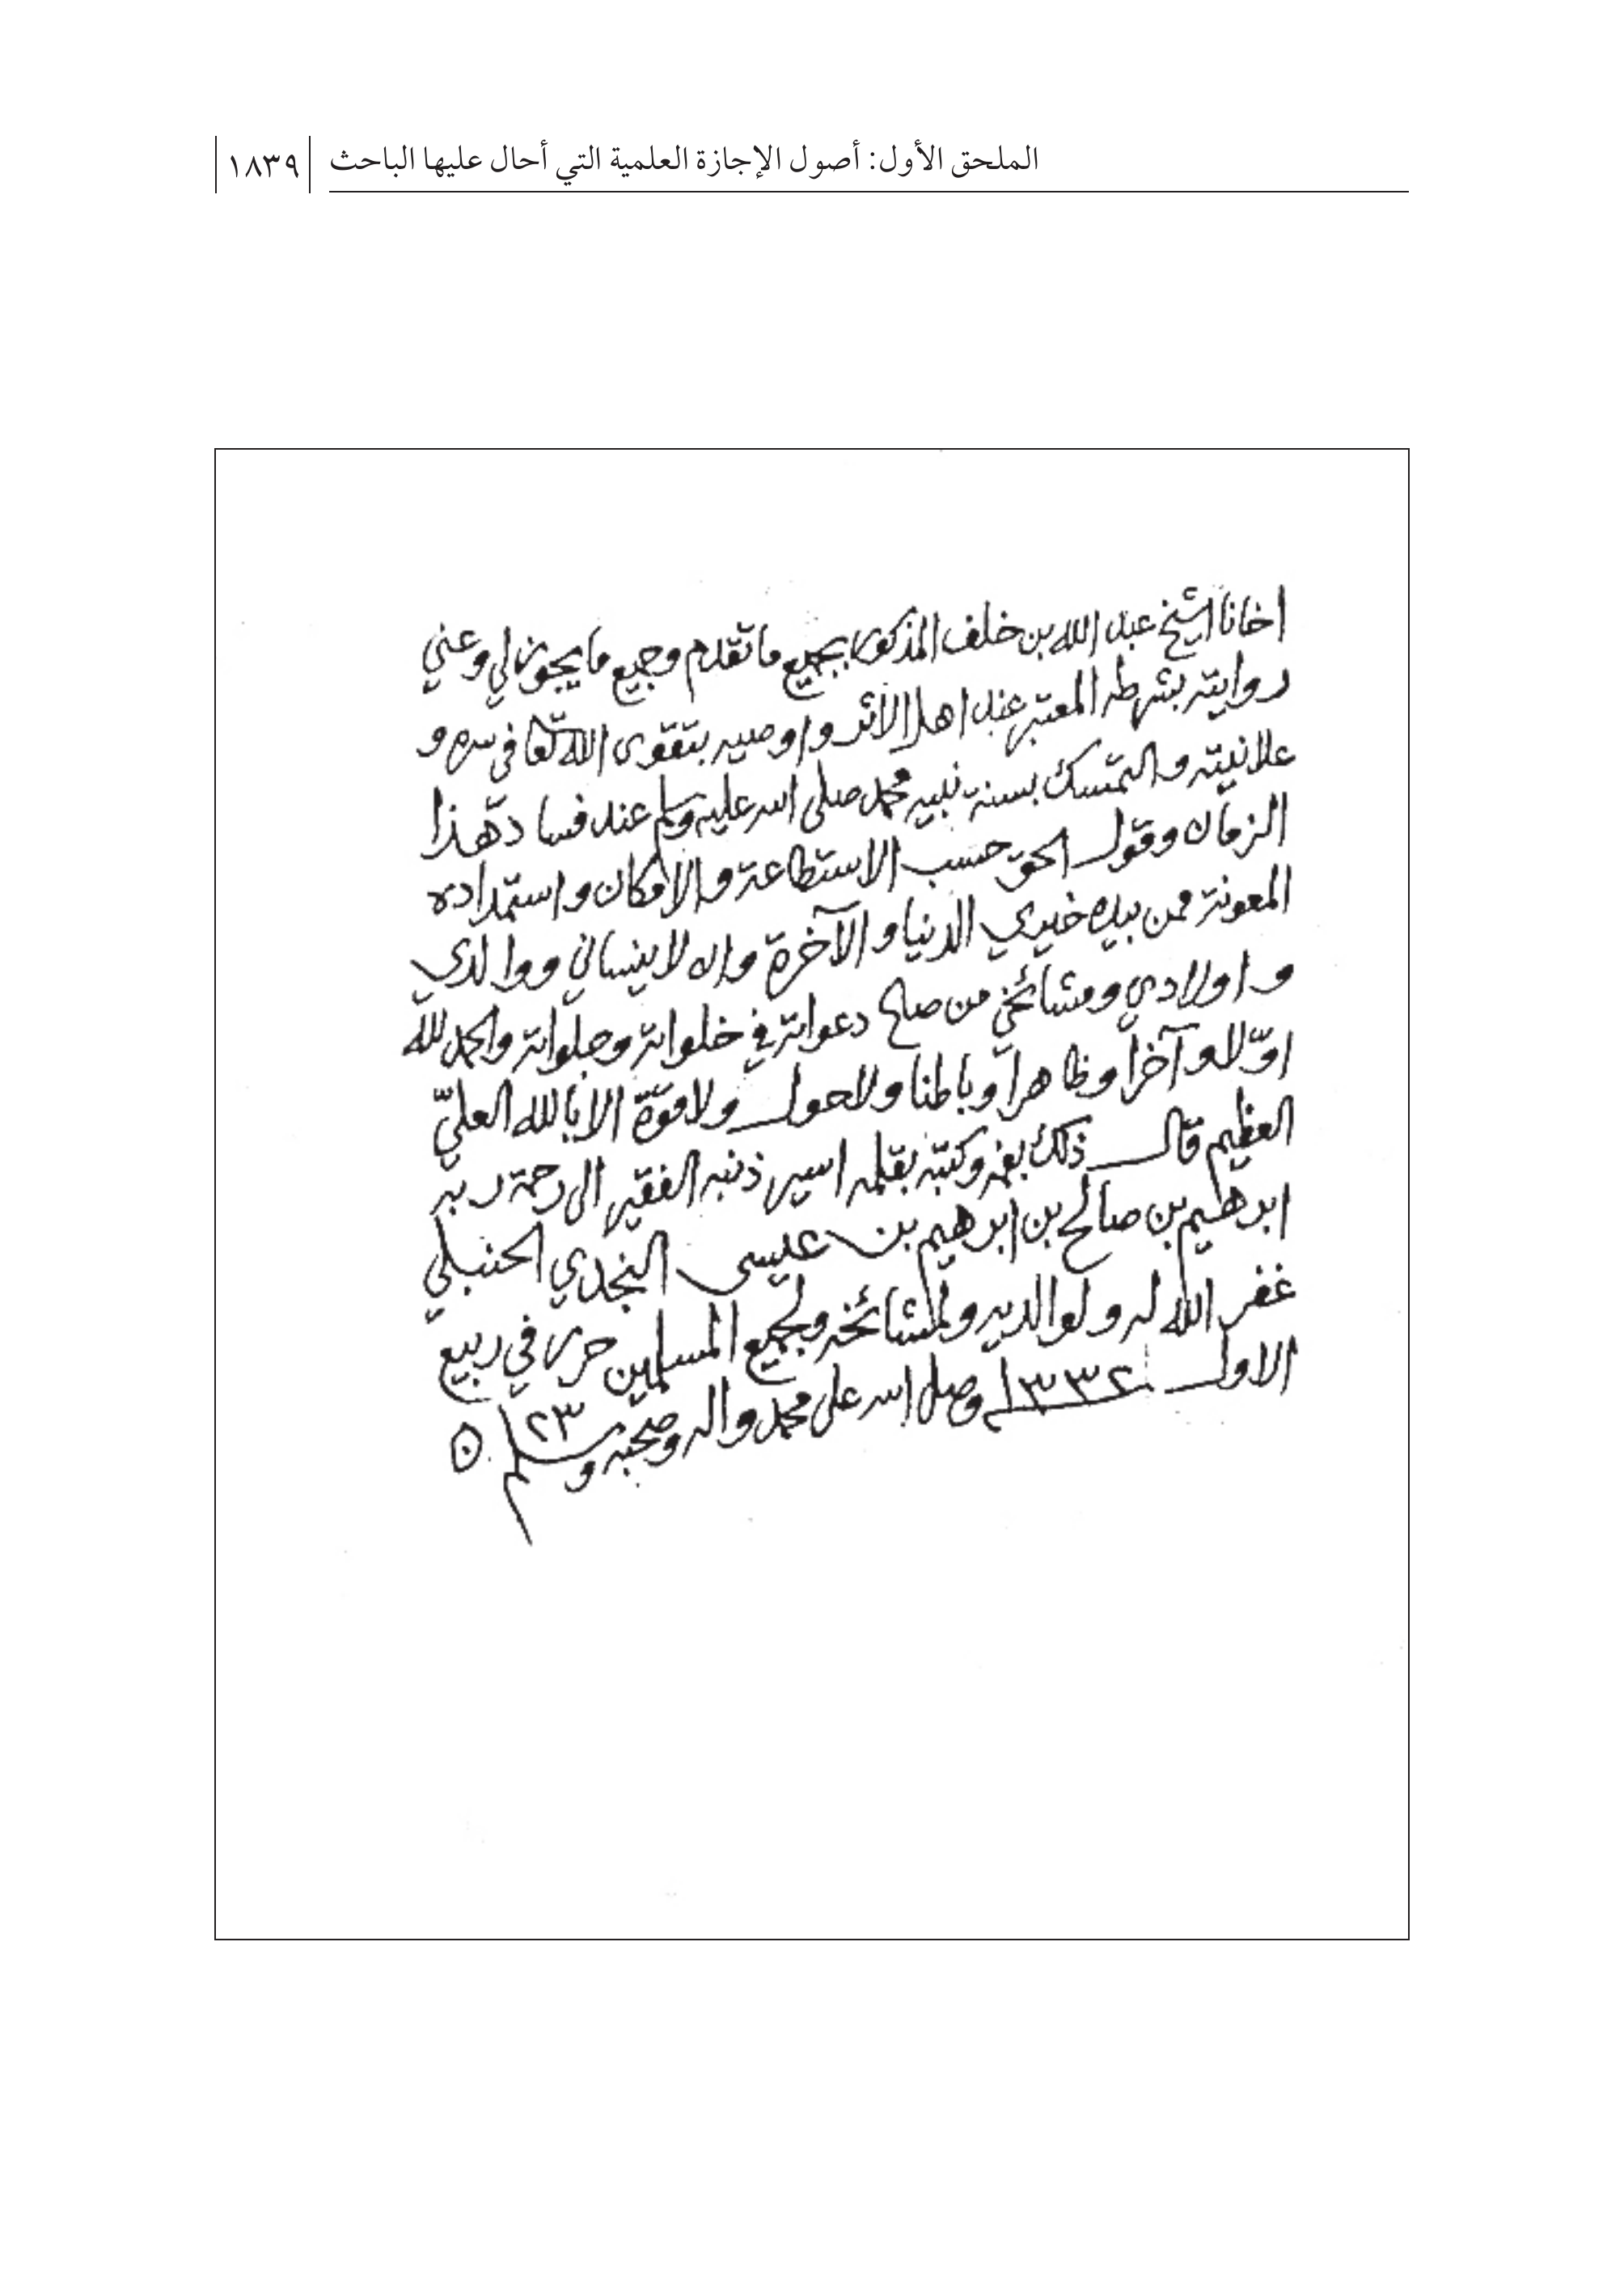 الملحق الأول: أصول الإجازة العلمية التي أحال عليها الباحث
١٨٣٩
اخانا الشيخ عبد الله بن خلف المذكور بجميع ما تقدم وجميع ما يجوز لي وعني
روايته بشرطه المعتبر عند اهل الاثر واوصيه بتقوى الله تعا في سره و
علانيته والتمسك بسنة نبيه محمد صلى الله عليه وسلم عند فساد هذا
الزمان وقول الحق حسب الاستطاعة والامكان واستمداده
المعونة ممن بيده خيري الدنيا والآخرة وان لا ينساني ووالدي
واولادي ومشائخي من صالح دعواته في خلواته وجلواته والحمد لله
اوّلا وآخراً وظاهراً وباطنا ولاحول ولا قوّة الا بالله العليّ
العظيم قال ذلك بفمه وكتبه بقلمه اسير ذنبه الفقير الى رحمة ربه
ابرهيم بن صالح بن ابرهيم بن عيسى النجدي الحنبلي
غفر الله له ولوالديه ولمشائخه ولجميع المسلمين حرر في ربيع
الاول ١٣٣٢ وصلى الله على محمد واله وصحبه وسلم ٢٣